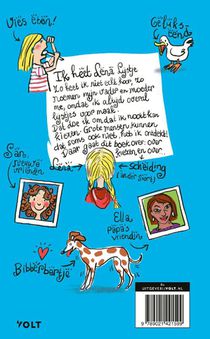 Vies eten!
Geluks-
eend
Ik heet Lena Lijstje
Zo heet ik niet echt hoor, zo
noemen mijn vader en moeder
me, omdat ik altijd overal
lijstjes voor maak.
Dat doe ik omdat ik nooit kan
kiezen. Grote mensen kunnen
dat soms ook niet, heb ik ontdekt.
Daar gaat dit boek over: over
kiezen en over
scheiding
Lena
vriendin
Ella
Papa's
vriendin
Bibberbeentje
UITGEVERIJVOLT.NL
VOLT
9789021421599